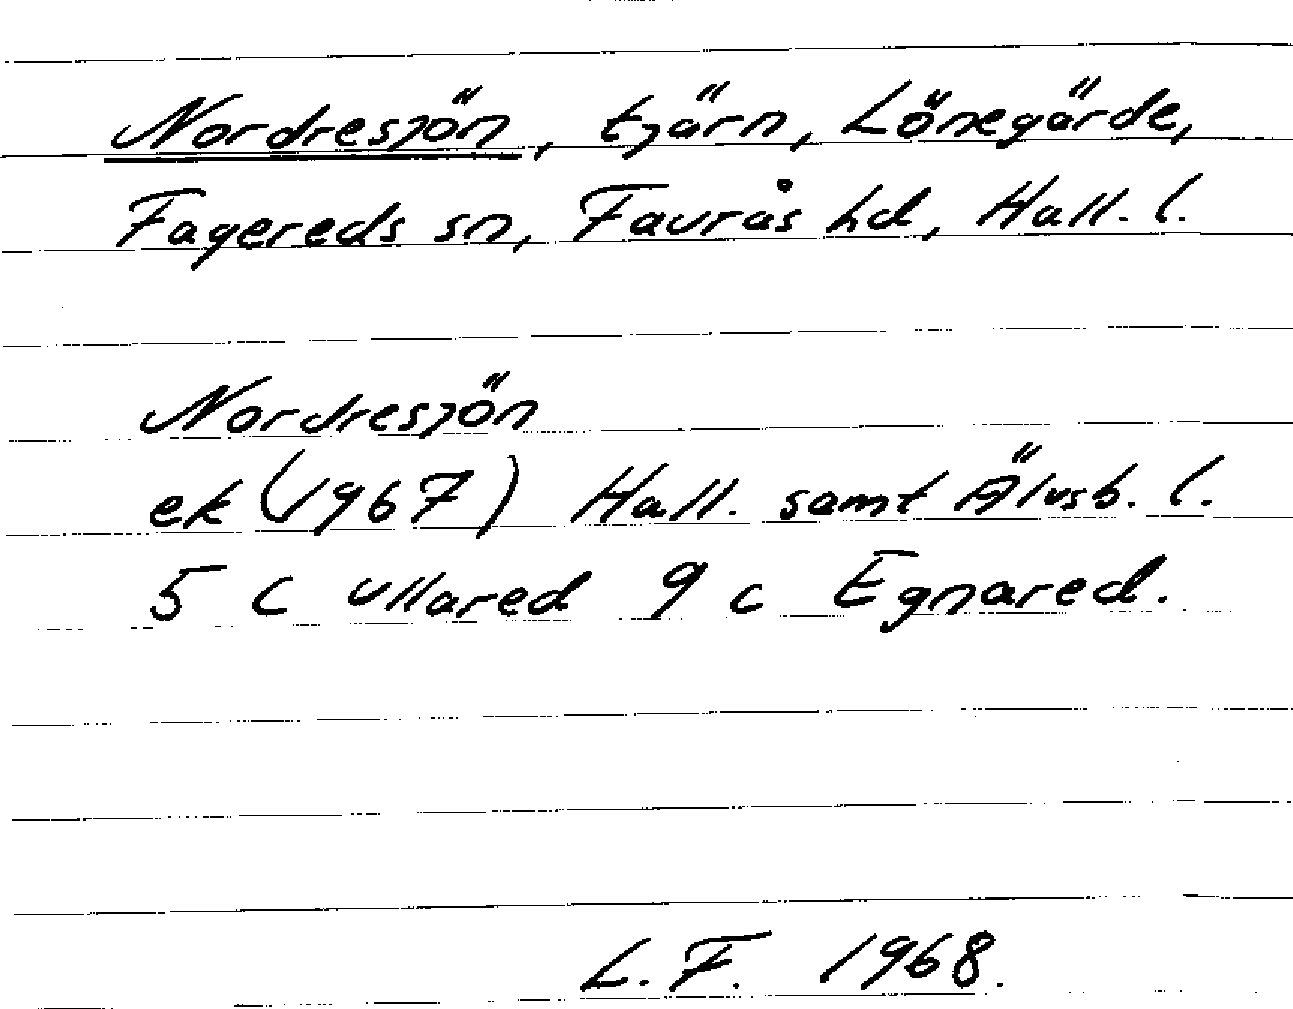 Nordresjön, tjärn, Lönegärde,
Fagereds sn, Faurås hd, Hall. l.
Nordresjön
ek (1967) Hall. samt Älvsb. l.
5 C Ullared 9 c Egnared.
L. F. 1968.